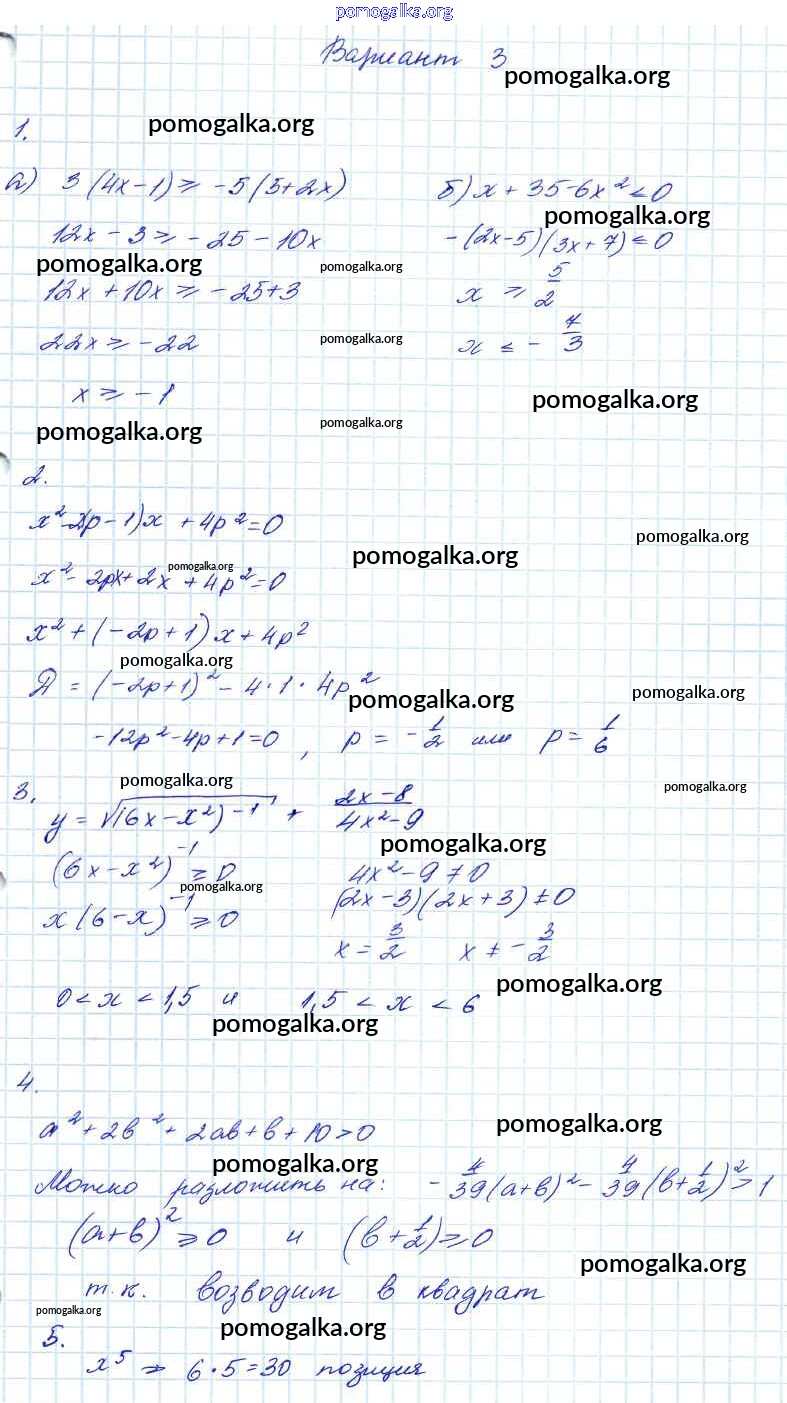 pomogalka.org
Вариант 3
pomogalka.org
1.
pomogalka.org
а) 3(4x-1) ≥ -5(5+2x)
б) x + 35-6x² < 0
pomogalka.org
12x - 3 ≥ -25 - 10x
-(2x-5)(3x+7) ≤ 0
pomogalka.org
pomogalka.org
12x + 10x ≥ -25+3
x ≥ 5/2
22x ≥ -22
pomogalka.org
x ≤ - 7/3
x ≥ -1
pomogalka.org
pomogalka.org
pomogalka.org
2.
x²-2(p-1)x + 4p²=0
pomogalka.org
pomogalka.org
pomogalka.org
x²- 2px+2x + 4p²=0
x²+(-2p+1)x+4p²
pomogalka.org
Д = (-2p+1)² - 4·1·4p²
pomogalka.org
pomogalka.org
-12p²-4p+1=0, p = -1/2 или p = 1/6
pomogalka.org
pomogalka.org
3.
y = √(6x-x²)⁻¹ + 2x-8/4x²-9
pomogalka.org
(6x-x²)⁻¹ ≥ 0
4x²-9≠0
pomogalka.org
(2x-3)(2x+3)≠0
x(6-x)⁻¹ ≥ 0
x = 3/2 x ≠ -3/2
pomogalka.org
0 < x < 1,5 и 1,5 < x < 6
pomogalka.org
4.
a²+2b²+2ab+b+10>0
pomogalka.org
pomogalka.org
Можно разложить на: -4/39(a+b)²-4/39(b+1/2)²>1
(a+b)² ≥ 0 и (b+1/2) ≥ 0
pomogalka.org
т.к. возводим в квадрат
pomogalka.org
pomogalka.org
5.
x⁵ ⇒ 6·5=30 позиция